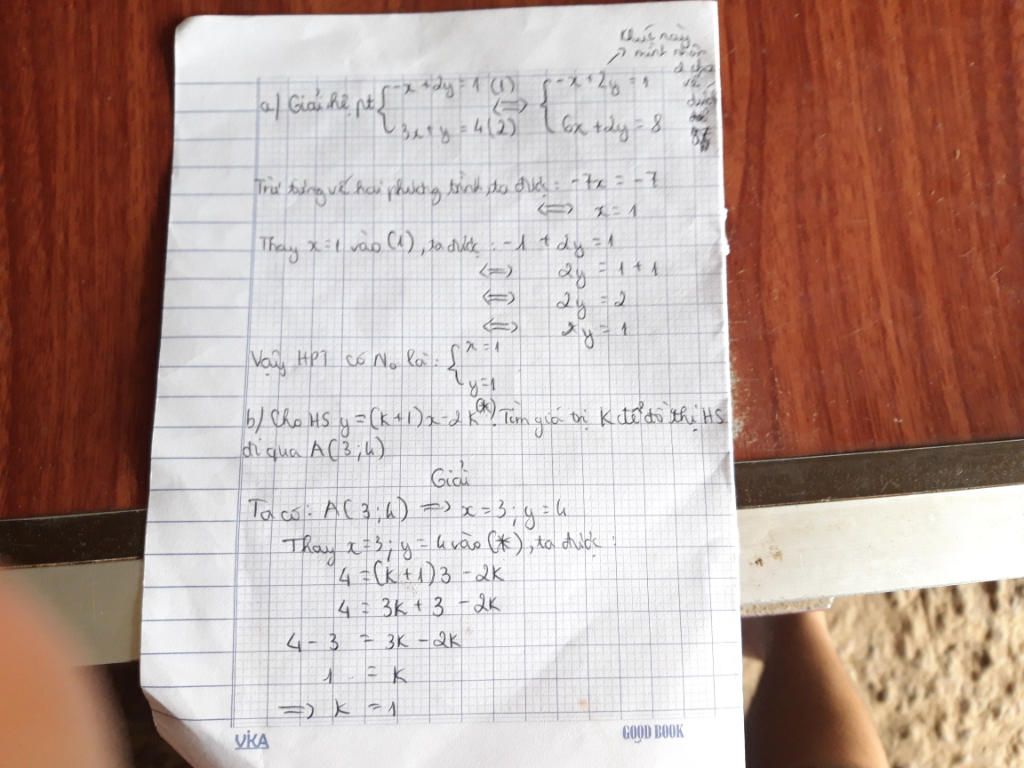 Khúc này
mình nhân
2 cho
vế
dưới
a) Giải hệ pt { -x + 2y = 1 (1) <=> { -x + 2y = 1
3x + y = 4 (2) 6x + 2y = 8
Trừ từng vế hai phương trình, ta được: -7x = -7
<=> x = 1
Thay x = 1 vào (1), ta được: -1 + 2y = 1
<=> 2y = 1 + 1
<=> 2y = 2
<=> y = 1
Vậy HPT có No là: { x = 1
y = 1
b) Cho HS y = (k+1)x - 2k (*). Tìm giá trị K để đồ thị HS
đi qua A(3;4)
Giải
Ta có: A(3;4) => x = 3; y = 4
Thay x = 3; y = 4 vào (*), ta được:
4 = (k+1)3 - 2k
4 = 3k + 3 - 2k
4 - 3 = 3k - 2k
1 = k
=> k = 1
VIKA GOOD BOOK